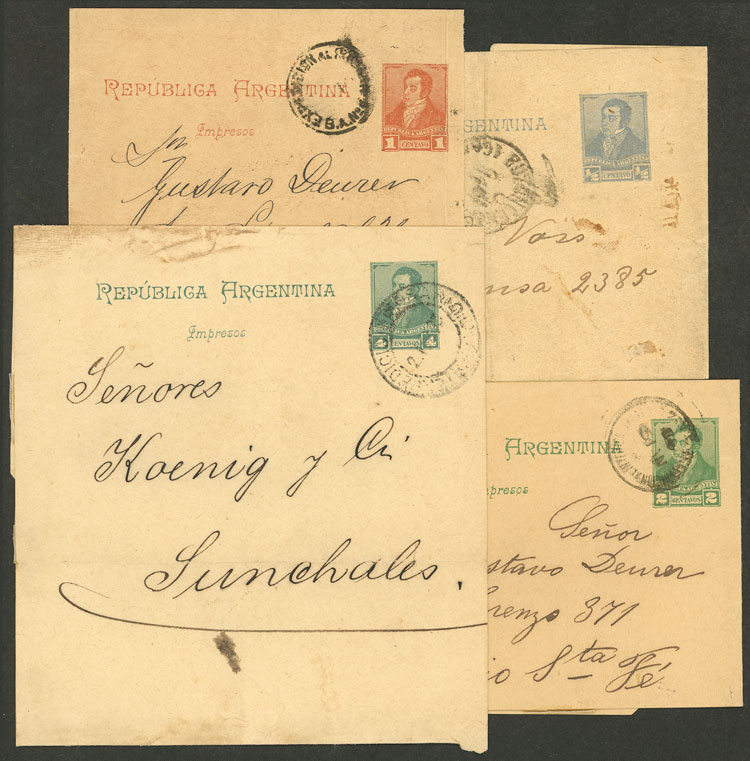 REPÚBLICA ARGENTINA
Impresos
REPUBLICA ARGENTINA
1 CENTAVO 1
Gustavo Deurer
GENTINA
REPUBLICA ARGENTINA
½ CENTAVO ½
2385
REPÚBLICA ARGENTINA
Impresos
REPUBLICA ARGENTINA
4 CENTAVOS 4
Señores
Koenig y Cí
Sunchales.
ARGENTINA
presos
2 CENTAVOS 2
Señor
stavo Deurer
renzo 371
io Sta Fé